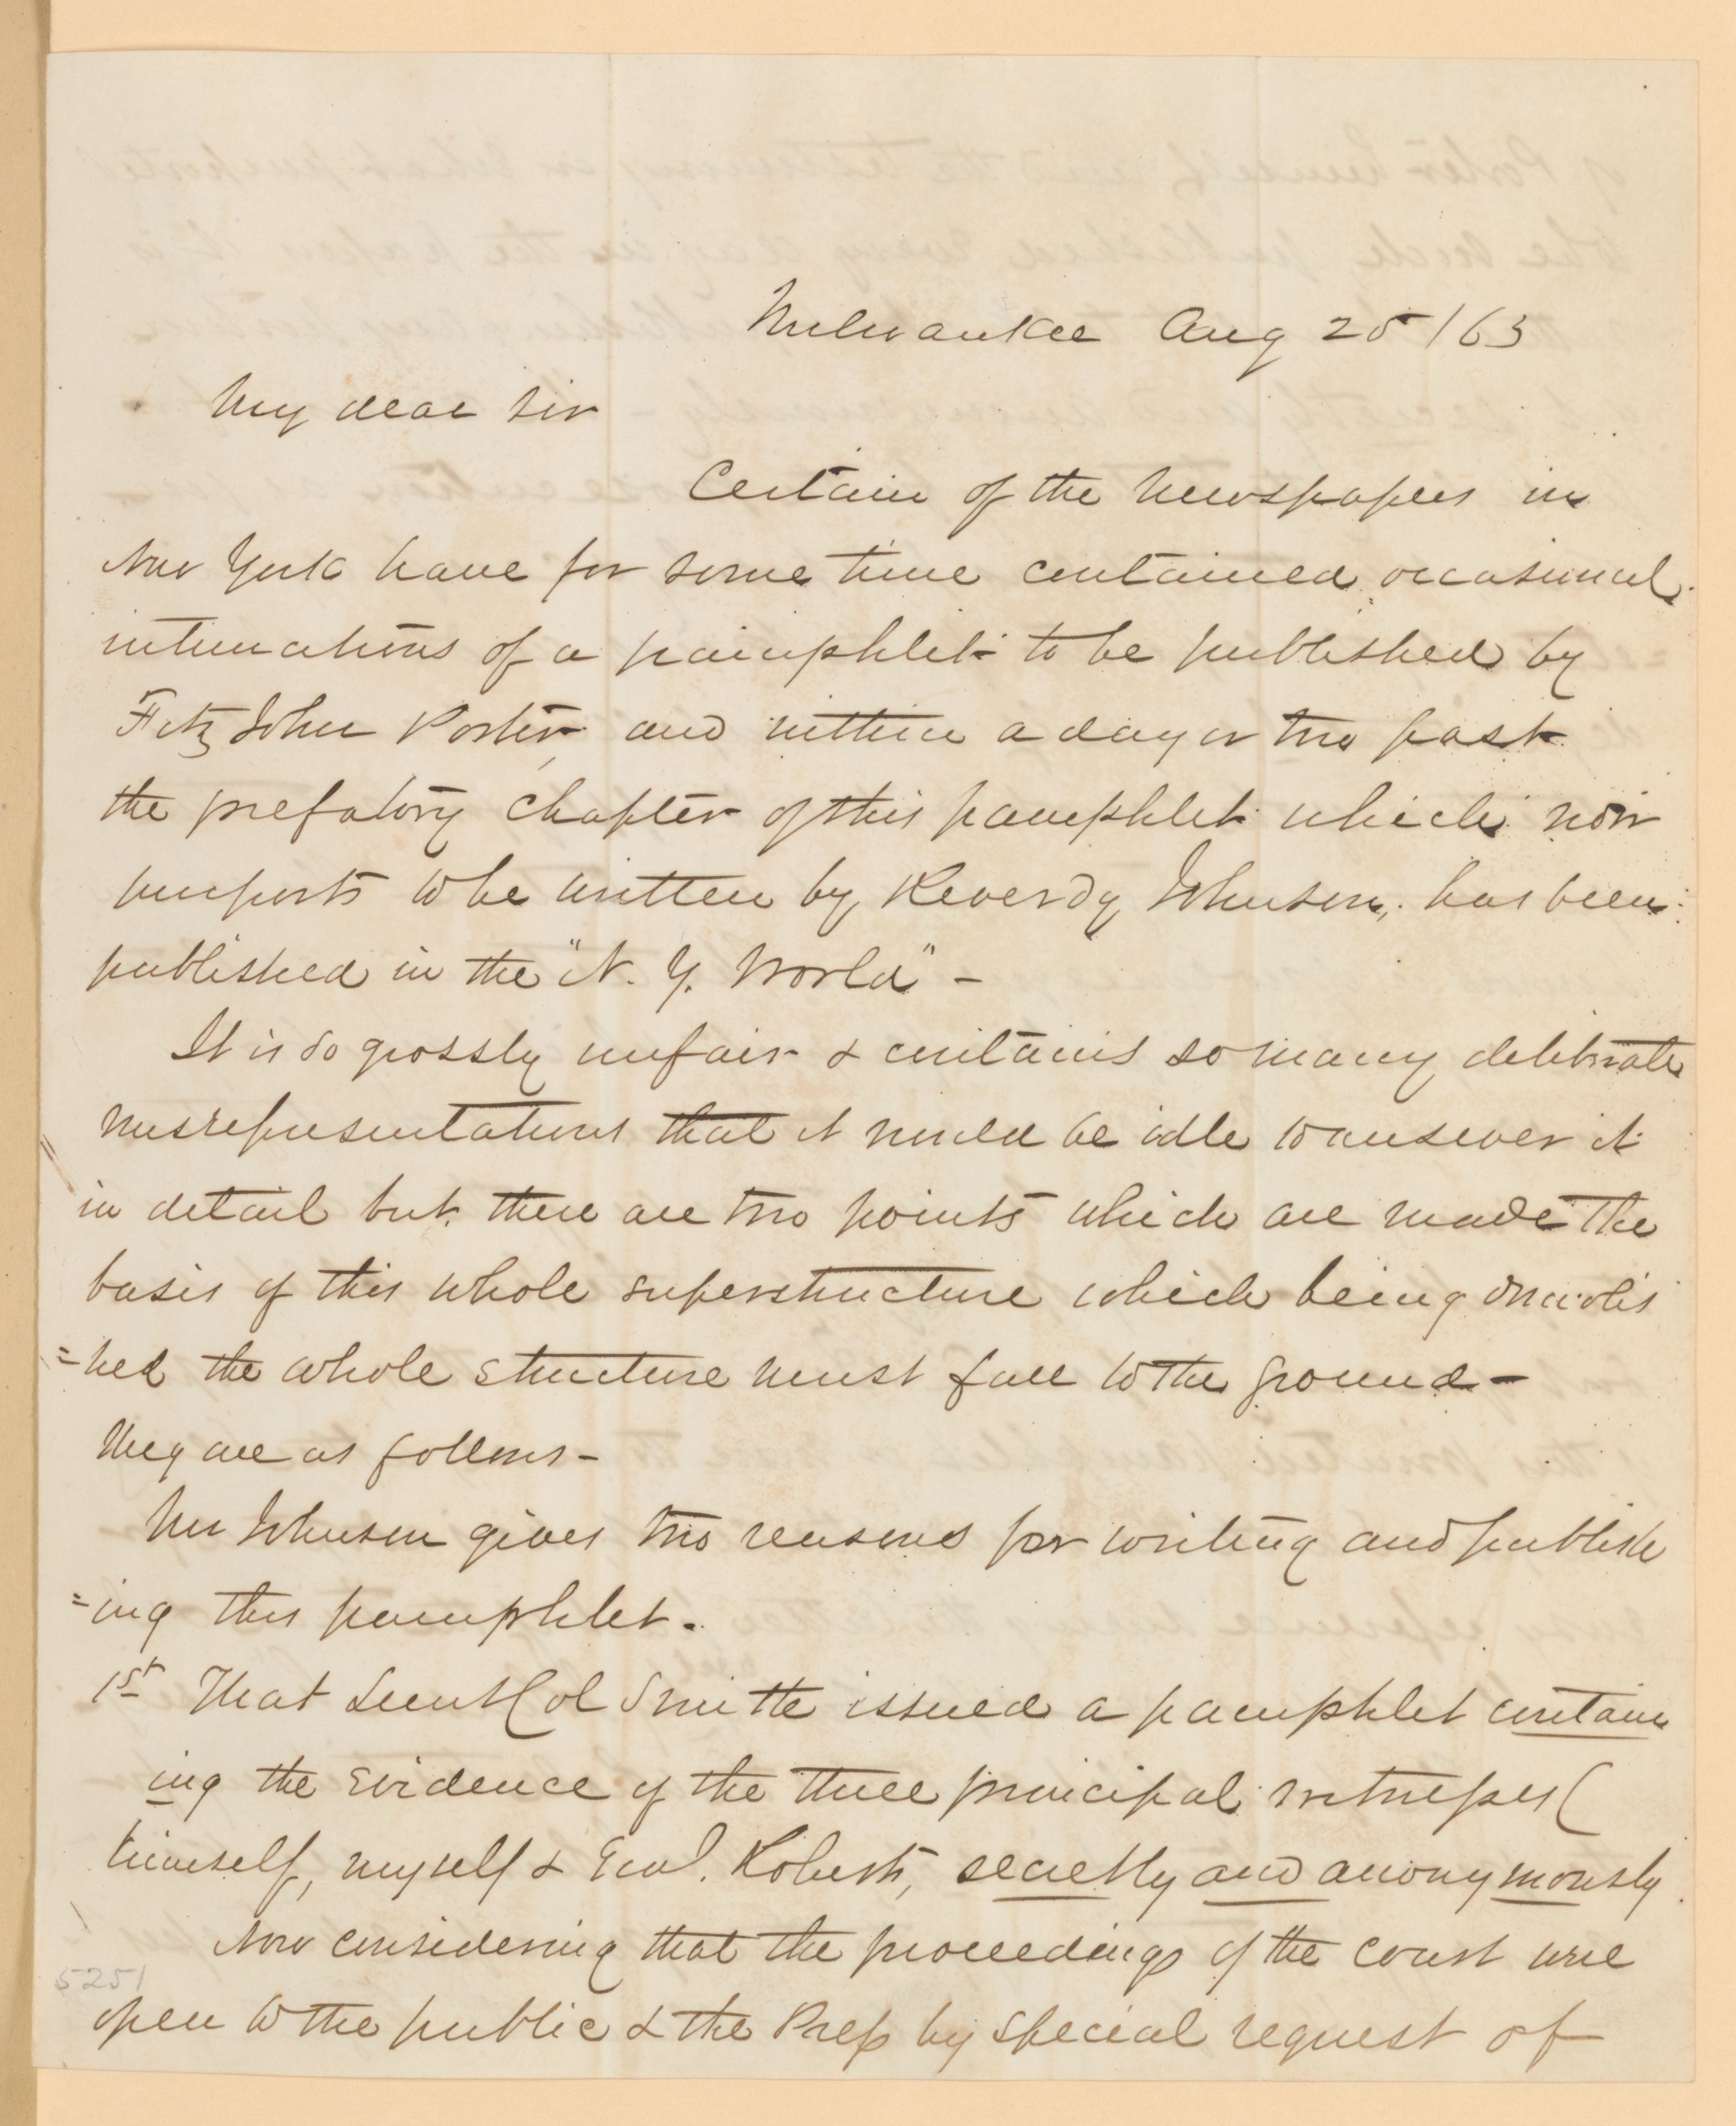 Milwaukee Aug 25 /63
My dear Sir
Certain of the Newspapers in
New York have for some time contained occasional
intimations of a pamphlet to be published by
Fitz John Porter, and within a day or two past
the prefatory chapter of this pamphlet which now
purports to be written by Reverdy Johnson, has been
published in the "N. Y. World" -
It is so grossly unfair & contains so many deliberate
misrepresentations that it would be idle to answer it
in detail but there are two points which are made the
basis of this whole superstructure which being demolis
=hed the whole structure must fall to the ground -
They are as follows -
Mr Johnson gives two reasons for writing and publish
=ing this pamphlet.
1st That Lieut Col Smith issued a pamphlet contain
ing the evidence of the three principal witnesses (
himself, myself & Genl. Roberts, secretly and anonymously.
Now considering that the proceedings of the court were
open to the public & the Press by special request of
5251